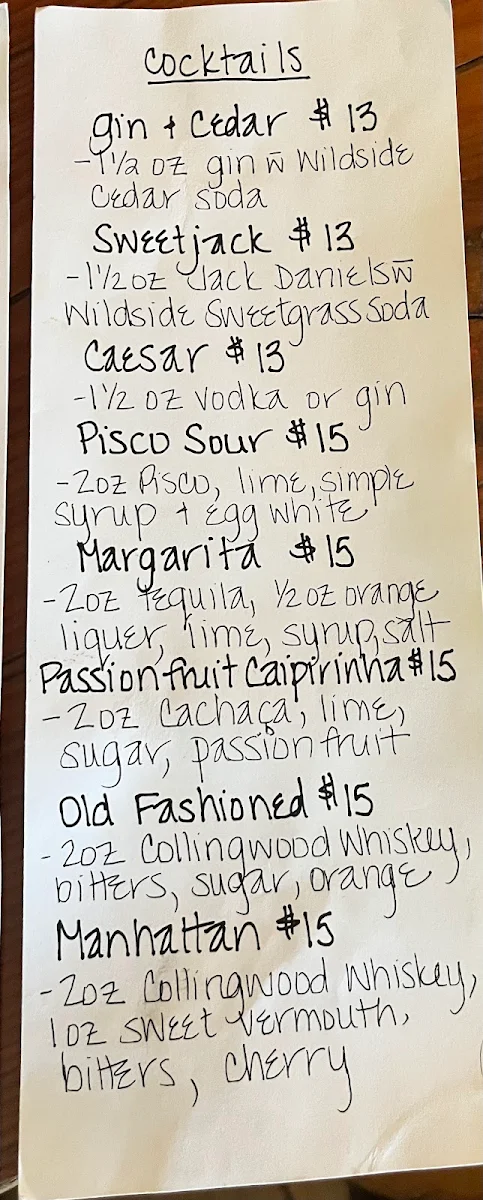 Cocktails
Gin + Cedar $13
- 1 1/2 oz gin w̄ Wildside
Cedar soda
Sweetjack $13
- 1 1/2 oz Jack Daniels w̄
Wildside Sweetgrass Soda
Caesar $13
- 1 1/2 oz vodka or gin
Pisco Sour $15
- 2oz Pisco, lime, simple
syrup + egg white
Margarita $15
- 2oz Tequila, 1/2 oz orange
liquer, lime, syrup, salt
Passionfruit Caipirinha $15
- 2oz Cachaça, lime,
sugar, passionfruit
Old Fashioned $15
- 2oz Collingwood Whiskey,
bitters, sugar, orange
Manhattan $15
- 2oz Collingwood Whiskey,
1oz sweet vermouth,
bitters, cherry